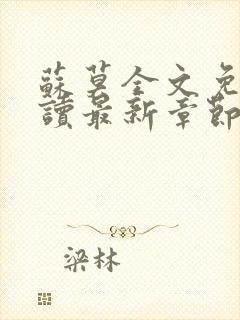 蘇莫全文免
讀最新章節
梁林